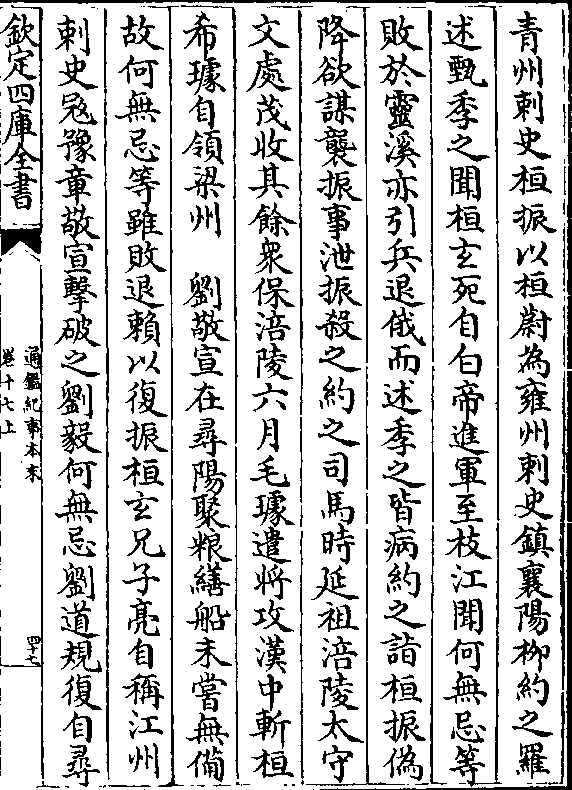 青州刺史桓振以桓蔚為雍州刺史鎮襄陽柳約之羅
述甄季之聞桓𤣥死自白帝進軍至枝江聞何無忌等
敗於靈溪亦引兵退俄而述季之皆病約之詣桓振偽
降欲謀襲振事泄振殺之約之司馬時延祖涪陵太守
文處茂收其餘衆保涪陵六月毛璩遣將攻漢中斬桓
希璩自領梁州　劉敬宣在尋陽聚粮繕船未嘗無備
故何無忌等雖敗退賴以復振桓𤣥兄子亮自稱江州
刺史冦豫章敬宣擊破之劉毅何無忌劉道規復自尋
欽定四庫全書
通鑑紀事本末
卷十七上
四十七